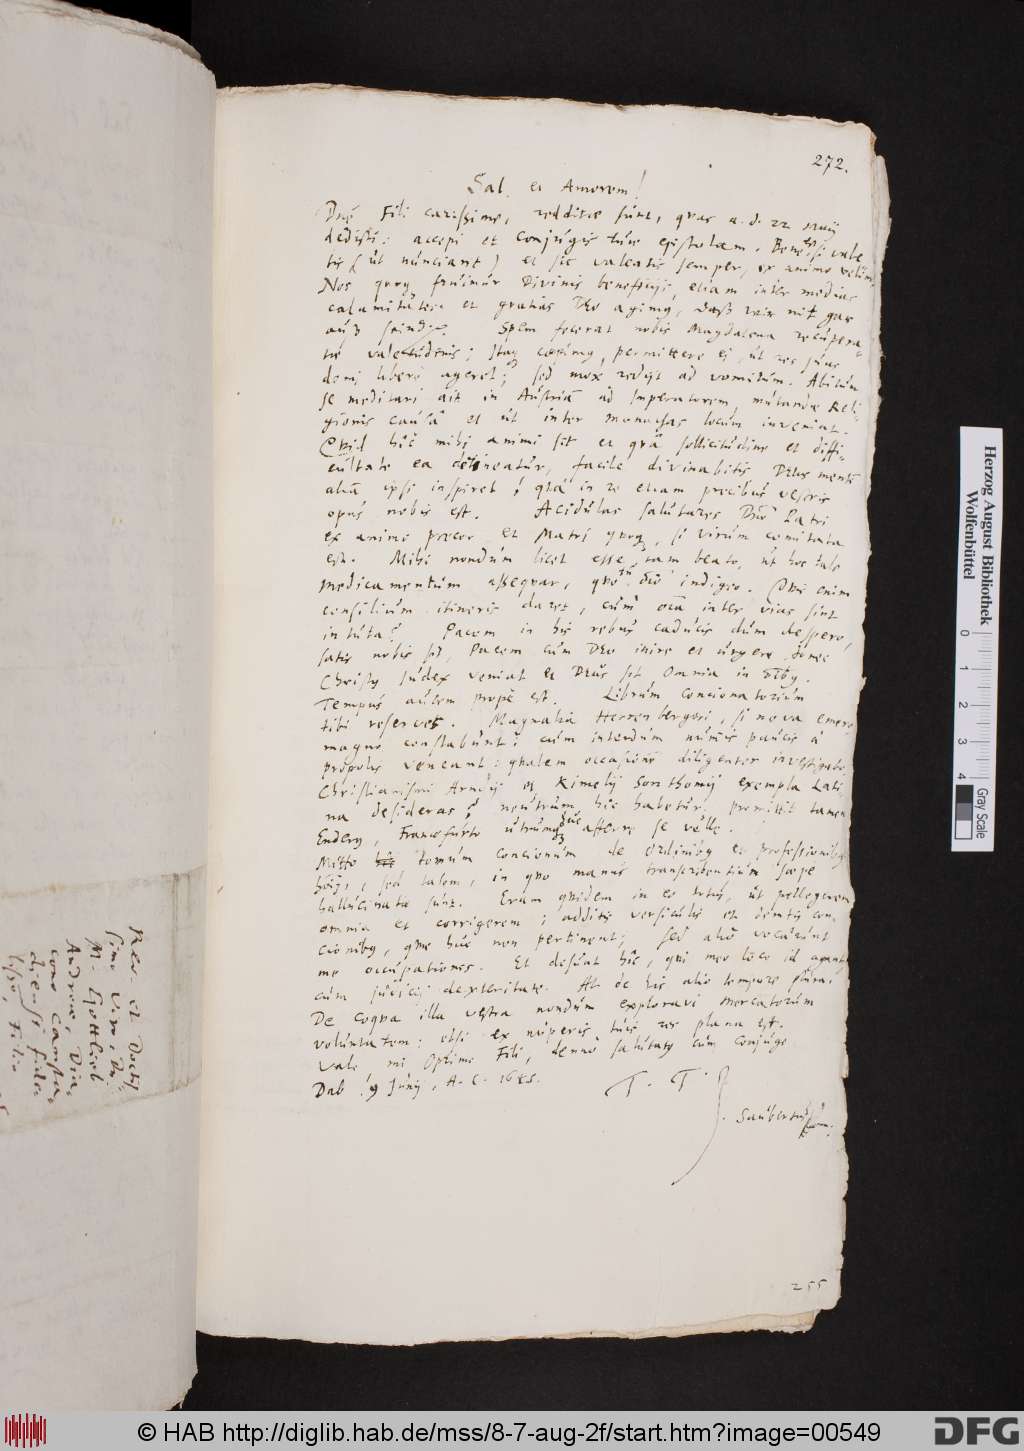 272.
Sal. et Amorem!
Dne Fili carissime, redditae sunt, quas a. d. 22 Maij
dedisti: accepi et conjugis tuae epistolam. Bene si vale
tis (ut nunciant) et sic valeatis semper, ex animo velim.
Nos quoq fruimur Divinis beneficijs, etiam inter medias
calamitates et gratias Deo agimq, daß wir nit gar
auß seindt. Spem fecerat nobis Magdalena recupera-
tae valetudinis; Itaq coepimq, permittere ei, ut res suas
domi libere ageret; sed mox redijt ad vomitum. Abitum
se meditari ait in Austriam ad Imperatorem mutandae Reli-
gionis causâ et ut inter monachas locum inveniat.
Quid hic mihi animi sit et quâ sollicitudine et diffi-
cultate ea detineatur, facile divinabitis. Deus mentem
aliam ipsi inspiret! quâ in re etiam precibus vestris
opus nobis est. Acidulas salutares Dno Patri
ex animo precor et Matri quoq, si virum comitata
est. Mihi nondum licet esse tam beato, ut hoc tale
medicamentum assequar, quo indigeo. Quis enim
consilium itineris daret, cum oia inter vias sint
intuta? Pacem in his rebus caducis dum despero,
satis nobis sit, Pacem cum Deo inire et urgere donec
Christq Judex veniat et Deus sit Omnia in oibq.
Tempus autem propè est. Librum concionatorium
tibi reserves. Magnalia Herrenbergeri, si nova emero
magno constabunt: cum interdum numis paucis à
propolis veneant: qualem occasionem diligenter investigabo.
Christianismi Arndij et Kimelij Sonthomij exempla Lati-
na desideras? neutrum hic habetur. promittit tamen
Enderq, Francofurto utrumq huc afferre se velle.
Mitto tomum concionum de Ordinibq et professionibq
hôijs, sed talem, in quo manus transcribentium saepe
hallucinatae sunt. Eram quidem in eo totus, ut pellegerem
omnia et corrigerem; additis versiculis et demtis con-
cionibq, quae huc non pertinent; sed alio vocarunt
me occupationes. Et desunt hîc, qui meo loco id agant
cum judicij dexteritate. At de his alio tempore plura.
De coqua illa vestra nondum exploravi mercatorum
voluntatem: etsi ex nuperis tuis res plana est.
Vale mi Optime Fili, denuò salutatq cum conjuge
Dab. 9 Junij, A. C. 1645.
T. T.
Saubertus
255
Rev. et Doctis-
simo Viro, Dn.
M. Gottlieb
Andreae, Dia-
cono
diensi fide-
lißo, Filio
Herzog August Bibliothek
Wolfenbüttel
0 1 2 3 4
Gray Scale
© HAB http://diglib.hab.de/mss/8-7-aug-2f/start.htm?image=00549
DFG